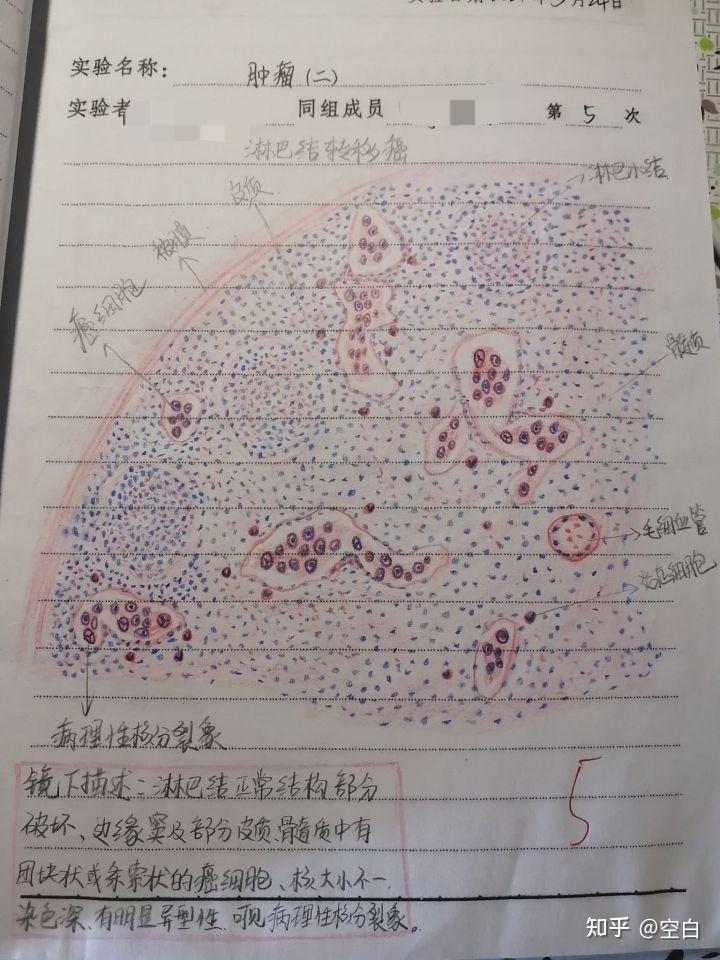 月24日
实验名称： 肿瘤（二）
实验者 同组成员 第 5 次
淋巴结转移癌
皮质
淋巴小结
被膜
癌细胞
髓质
毛细血管
炎症细胞
病理性核分裂象
镜下描述：淋巴结正常结构部分
破坏、边缘窦及部分皮质、髓质中有
团块状或条索状的癌细胞、核大小不一、
染色深、有明显异型性、可见病理性核分裂象。
5
知乎 @空白